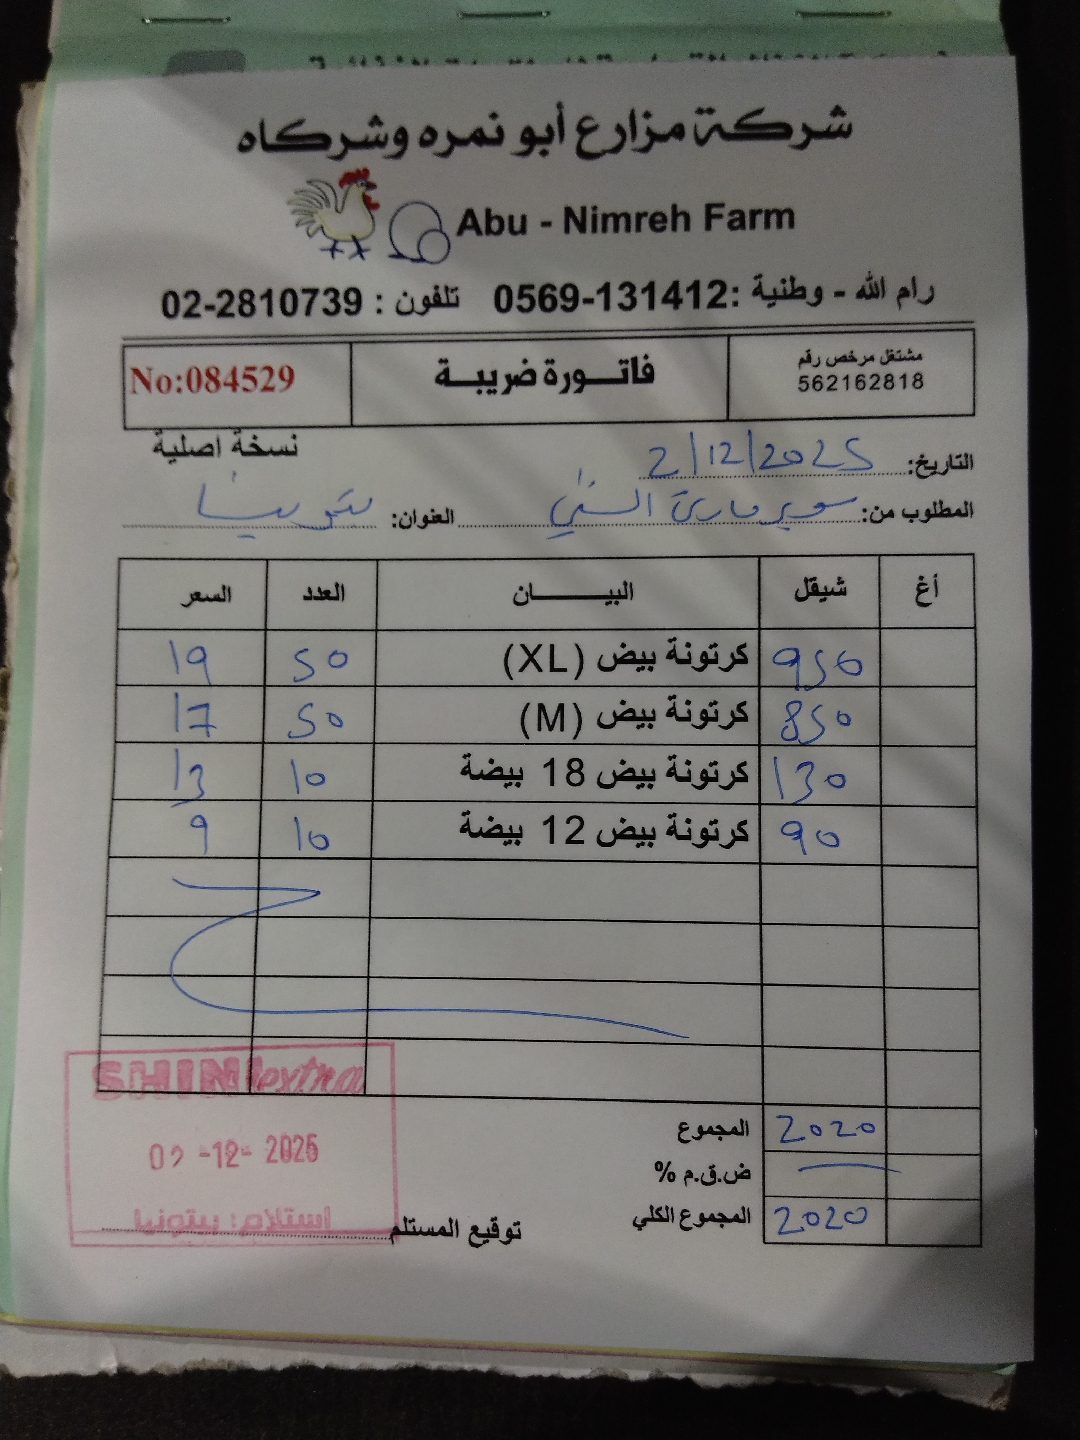 شركة مزارع أبو نمره وشركاه
Abu - Nimreh Farm
رام الله - وطنية :0569-131412 تلفون : 02-2810739
مشتغل مرخص رقم
562162818
فاتورة ضريبة
No:084529
نسخة اصلية
التاريخ: 2/12/2025
المطلوب من: سوبر ماركت الشني العنوان: بتونيا
أغ شيقل البيان العدد السعر
950 كرتونة بيض (XL) 50 19
850 كرتونة بيض (M) 50 17
130 كرتونة بيض 18 بيضة 10 13
90 كرتونة بيض 12 بيضة 10 9
SHINI extra
02 -12- 2025
استلام: بيتونيا
المجموع 2020
ض.ق.م %
المجموع الكلي 2020
توقيع المستلم